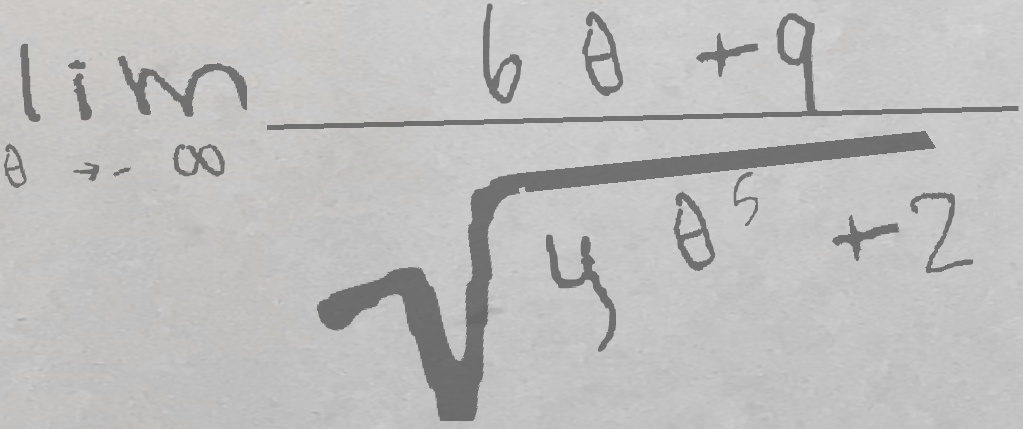 lim θ → -∞ 6θ + 9
√ 4θ⁵ + 2